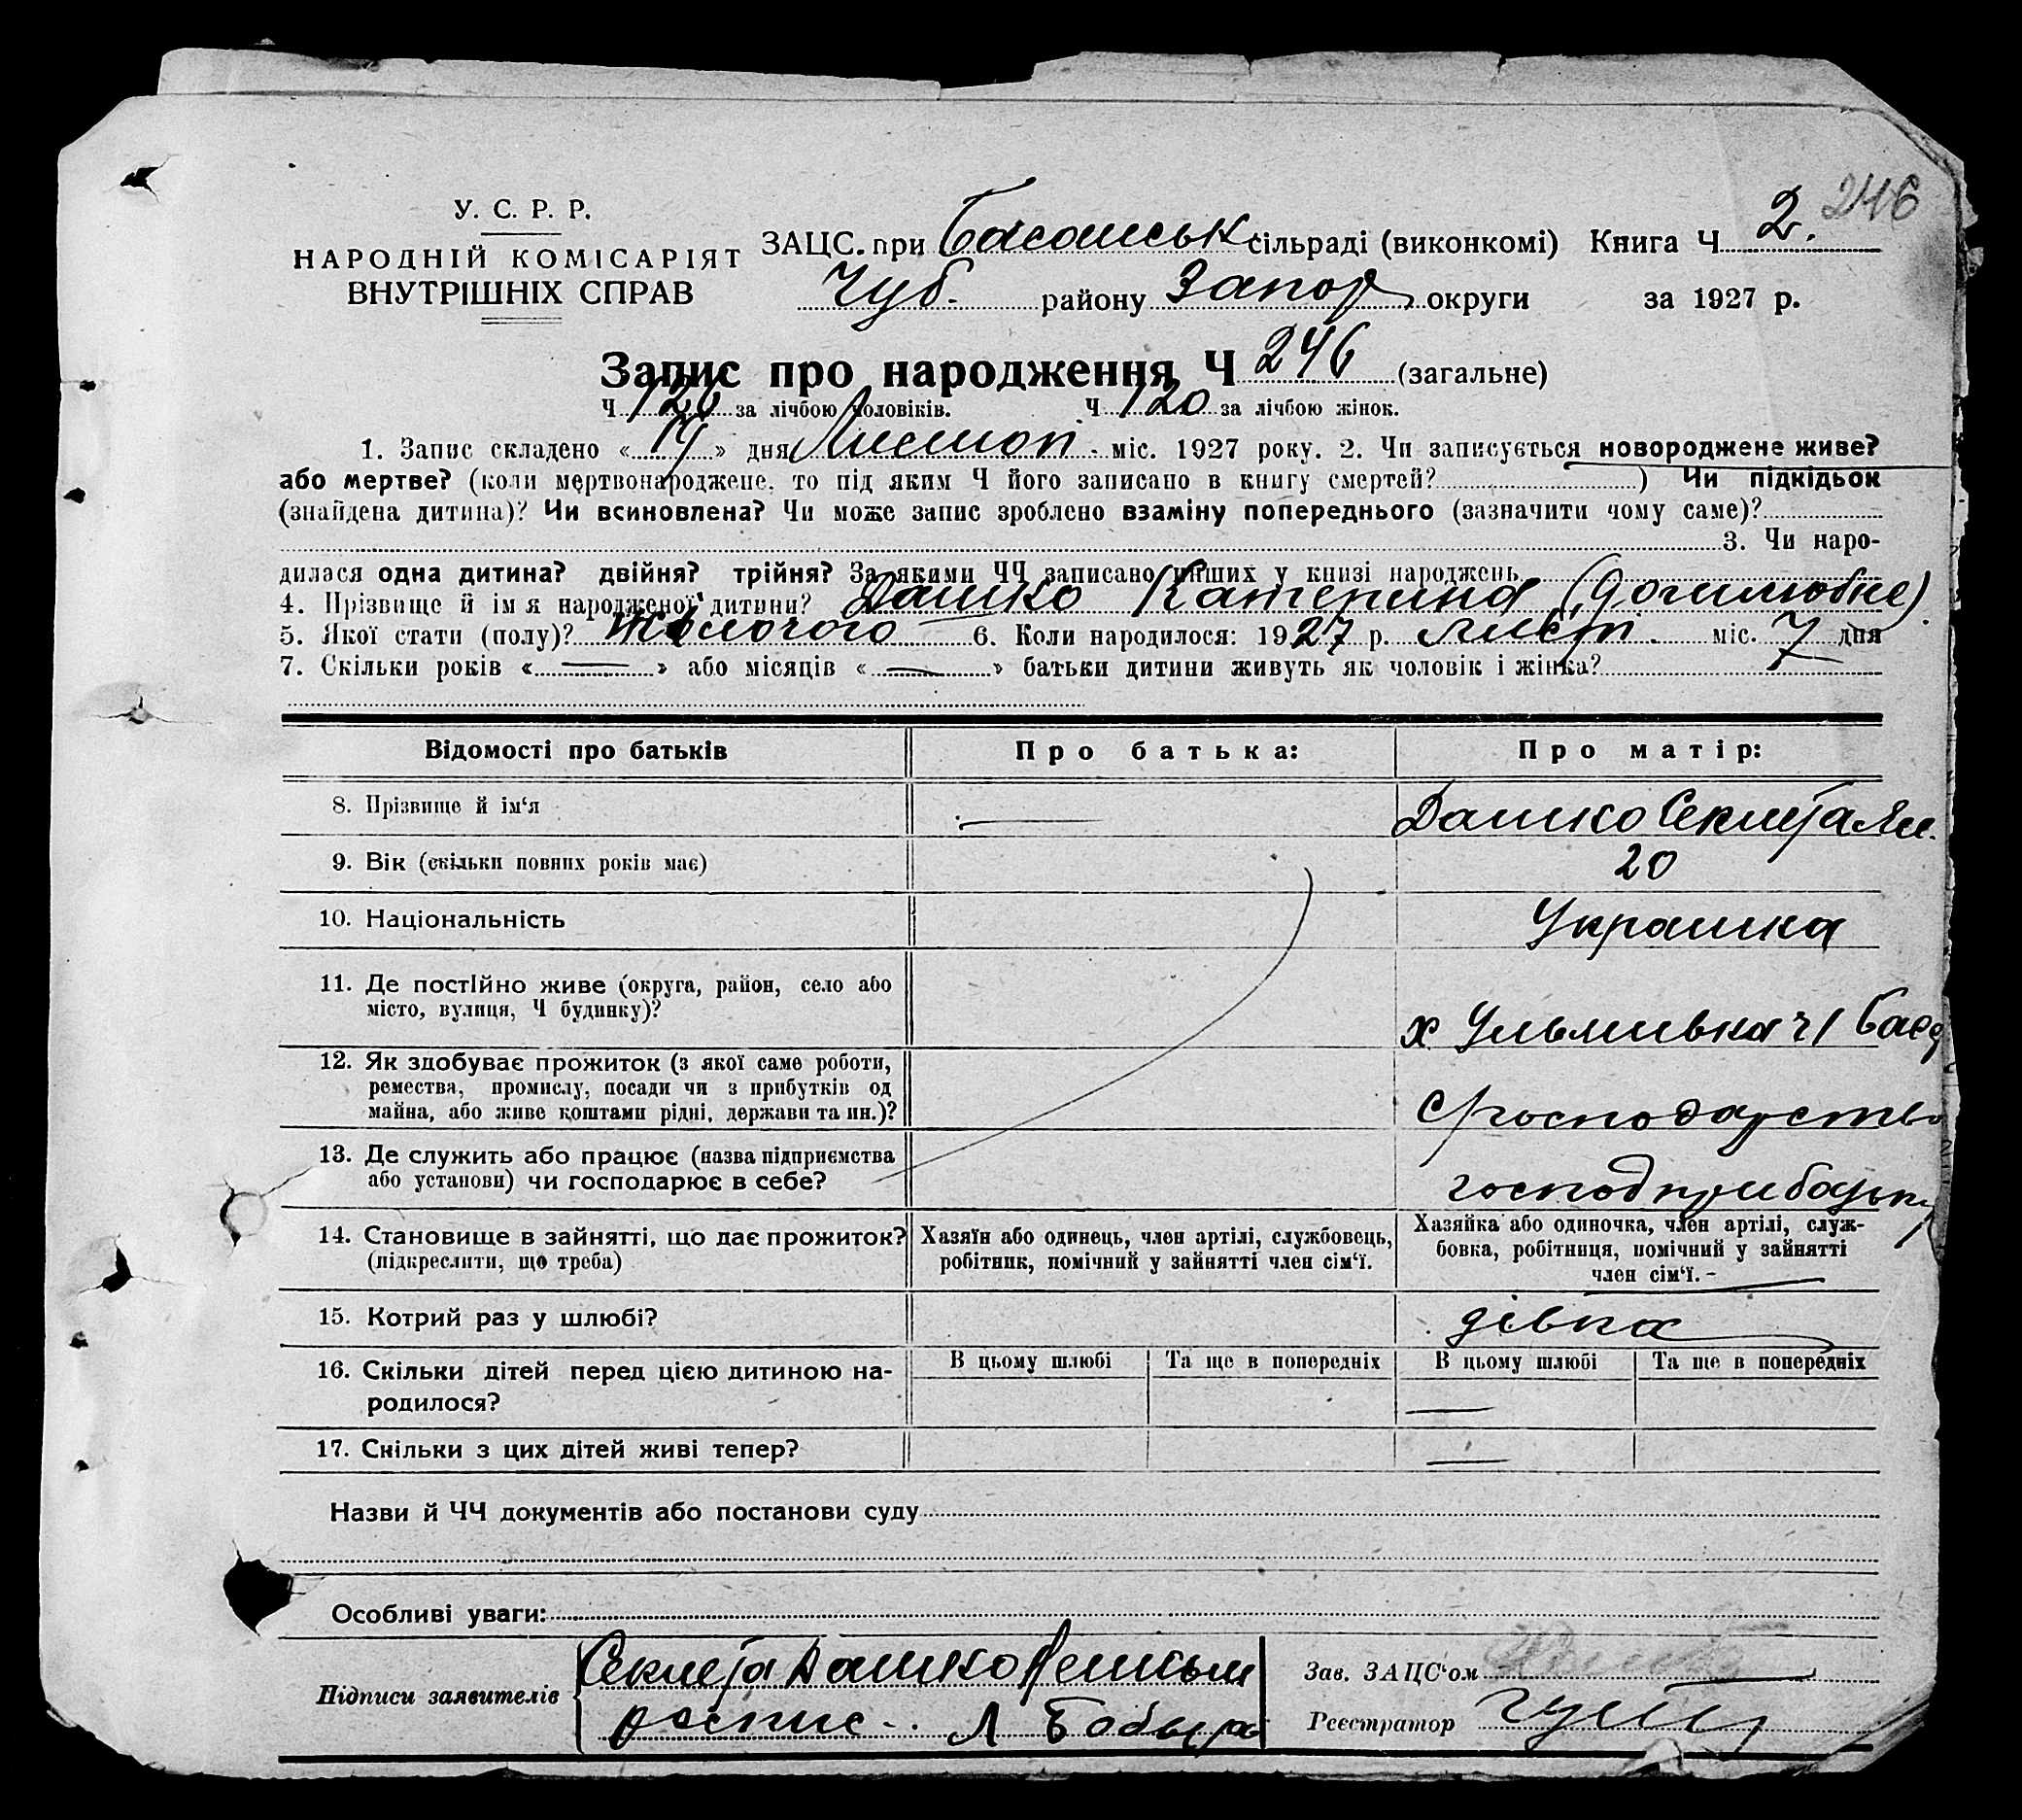 246
У. С. Р. Р.
НАРОДНІЙ КОМІСАРІЯТ
ВНУТРІШНІХ СПРАВ
ЗАЦС. при Басанськ сільраді (виконкомі) Книга Ч 2.
Чуб. району Запор округи за 1927 р.
Запис про народження Ч 246 (загальне)
Ч 126 за лічбою чоловіків. Ч 120 за лічбою жінок.
1. Запис складено « 14 » дня Листоп. міс. 1927 року. 2. Чи записується новороджене живе?
або мертве? (коли мертвонароджене, то під яким Ч його записано в книгу смертей? ) Чи підкідьок
(знайдена дитина)? Чи всиновлена? Чи може запис зроблено взаміну попереднього (зазначити чому саме)?
3. Чи наро-
дилася одна дитина? двійня? трійня? За якими ЧЧ записано инших у книзі народжень
4. Прізвище й ім я народженої дитини? Дашко Катерина
5. Якої статі (полу)? Жіночого 6. Коли народилося: 1927 р. лист. міс. 7 дня
7. Скільки років « — » або місяців « — » батьки дитини живуть як чоловік і жінка?
Відомості про батьків Про батька: Про матір:
8. Прізвище й ім‘я — Дашко Секлета
9. Вік (скільки повних років має) 20
10. Національність Украинка
11. Де постійно живе (округа, район, село або
місто, вулиця, Ч будинку)? х Ульяновка
12. Як здобуває прожиток (з якої саме роботи,
ремества, промислу, посади чи з прибутків од
майна, або живе коштами рідні, держави та ин.)? с/господарство
13. Де служить або працює (назва підприємства
або установи) чи господарює в себе? господ при батьку
14. Становище в зайнятті, що дає прожиток?
(підкреслити, що треба)
Хазяїн або одинець, член артілі, службовець,
робітник, помічний у зайнятті член сім‘ї.
Хазяйка або одиночка, член артілі, служ-
бовка, робітниця, помічний у зайнятті
член сім‘ї. -
15. Котрий раз у шлюбі? дівка
16. Скільки дітей перед цією дитиною на-
родилося?
В цьому шлюбі Та ще в попередніх В цьому шлюбі Та ще в попередніх
—
17. Скільки з цих дітей живі тепер? —
Назви й ЧЧ документів або постанови суду
Особливі уваги:
Підписи заявителів Секлета Дашко
роспис. Л
Зав. ЗАЦС‘ом
Реєстратор